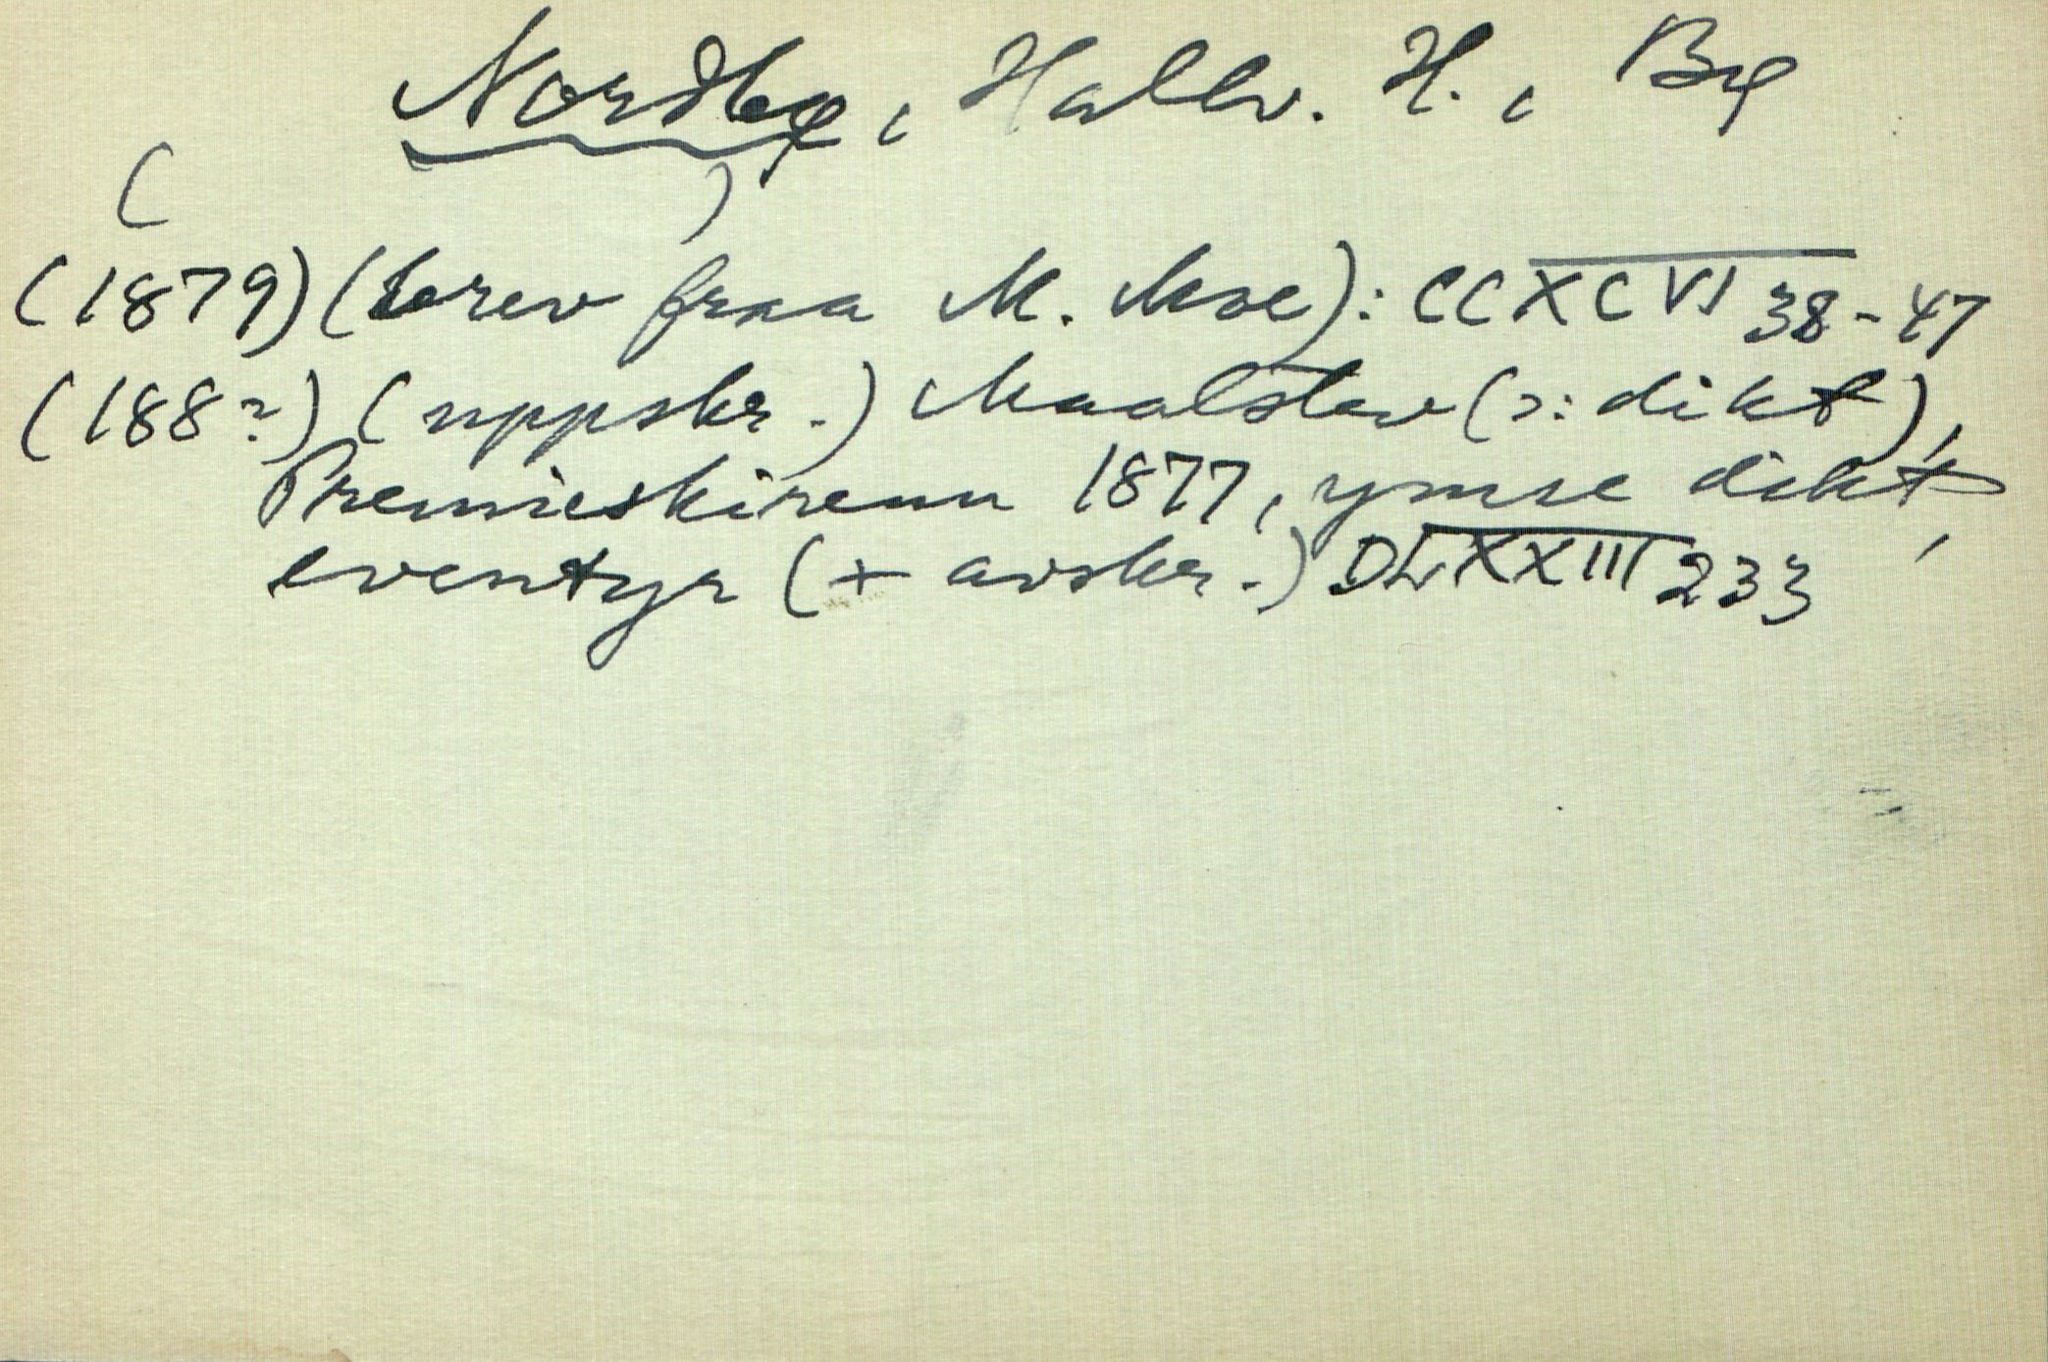 Nordbø, Hallv. H., Bø
( )
(1879) (brev fraa M. Moe): CCXCVI 38-47
(188?) (uppskr.) Maalstev (ɔ: dikt),
Premieskirenn 1877, ymse dikt,
eventyr (+ avskr.) DLXXIII 233